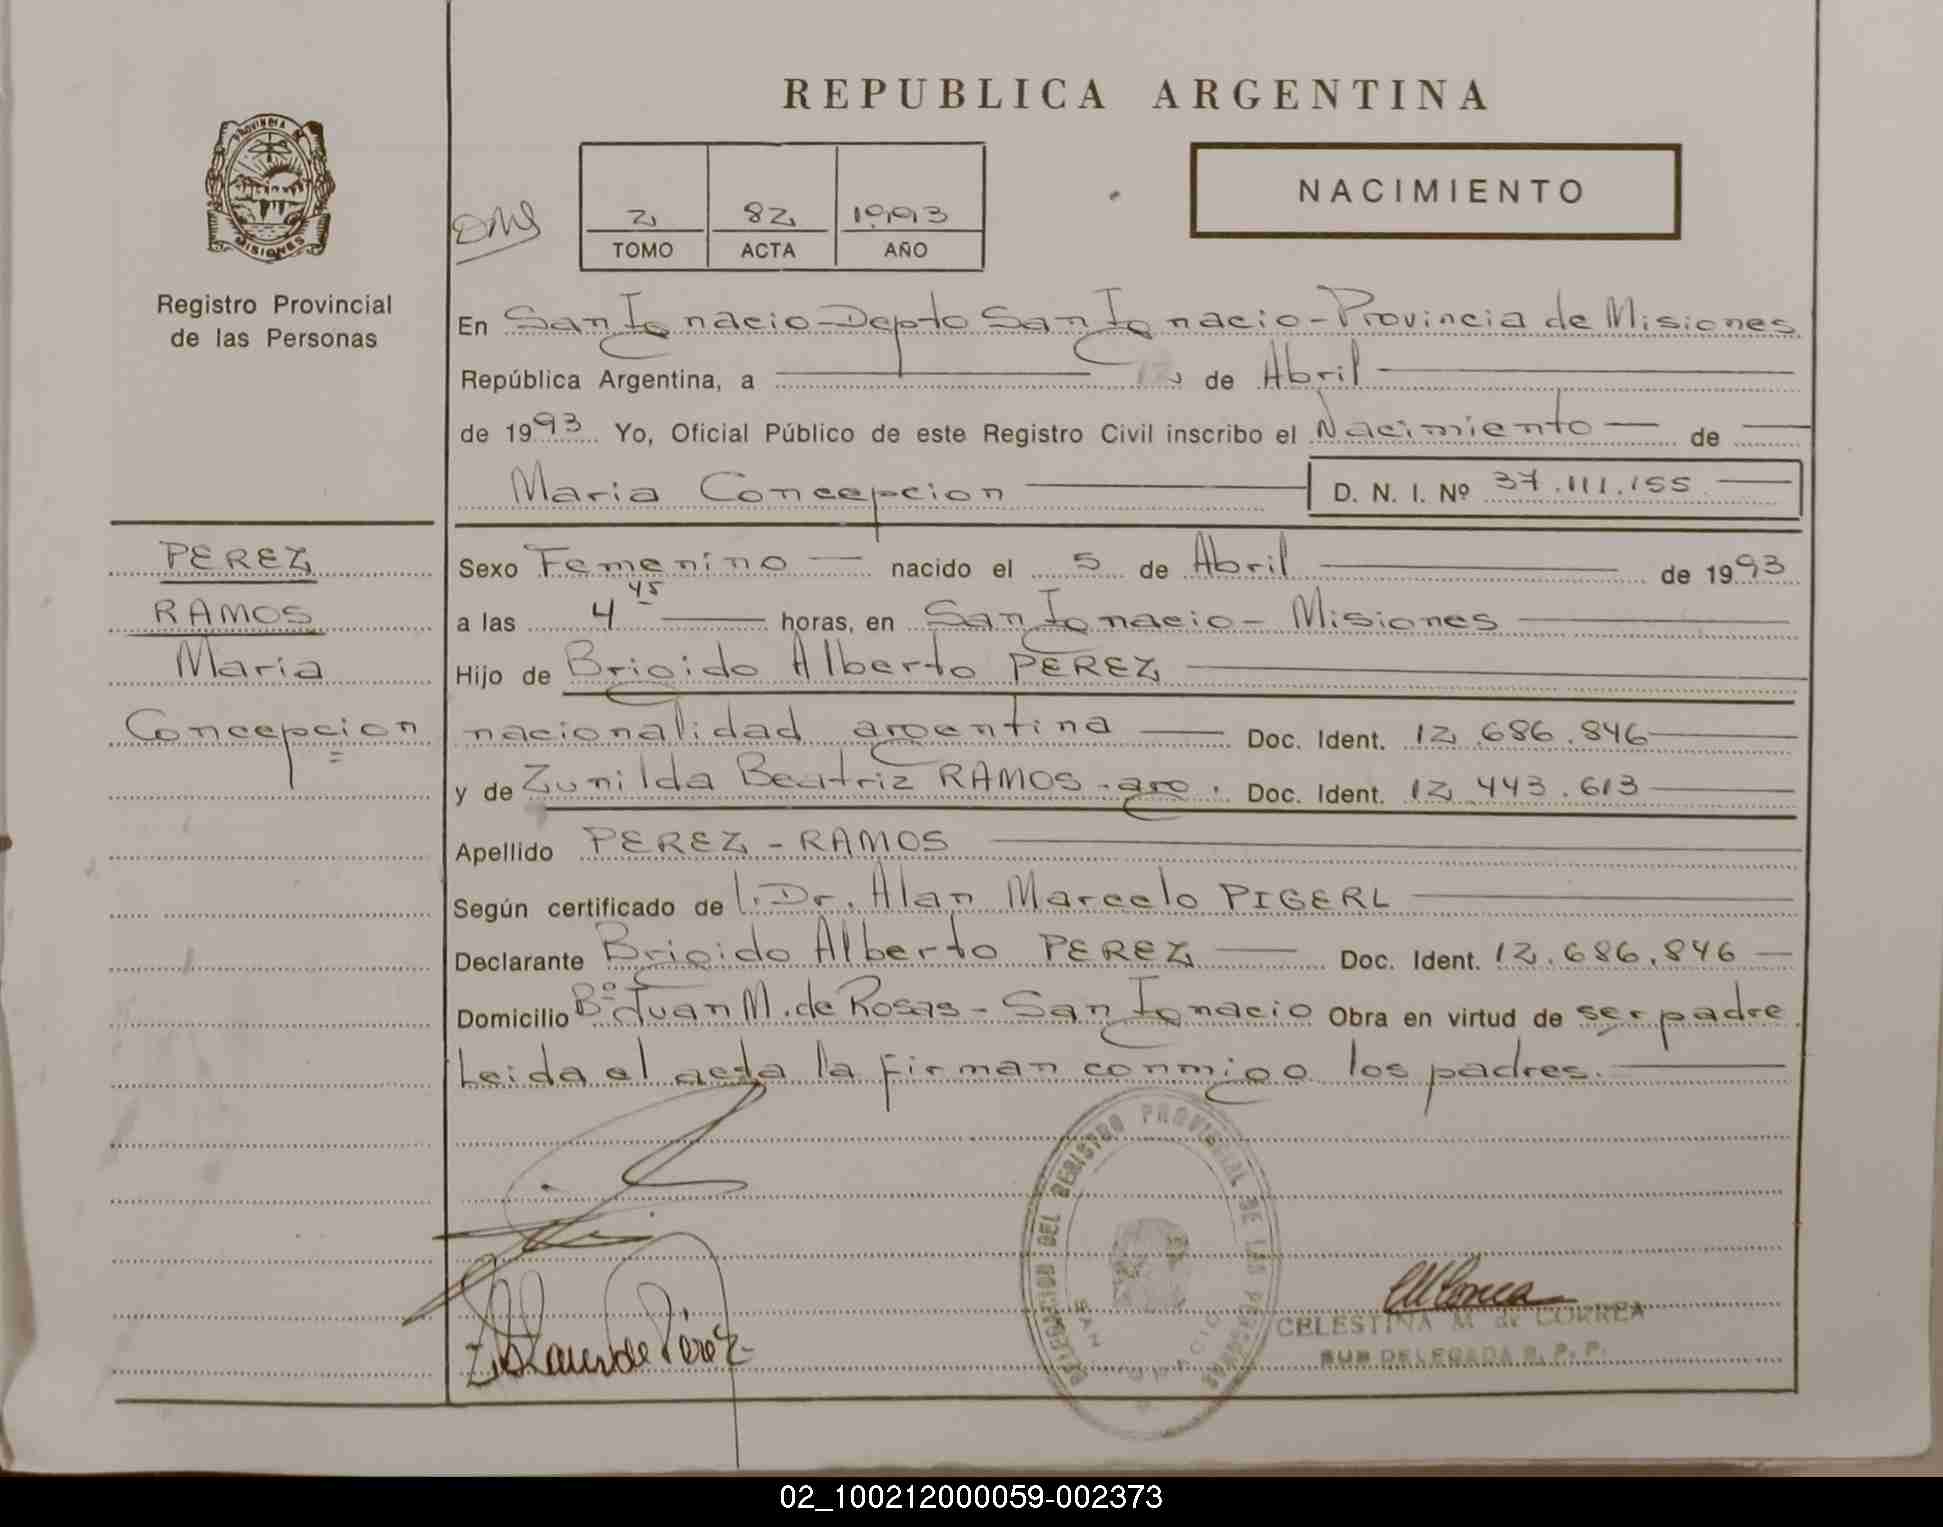 REPUBLICA ARGENTINA
PROVINCIA DE
MISIONES
Registro Provincial
de las Personas
2 82 1993
TOMO ACTA AÑO
NACIMIENTO
En San Ignacio-Depto San Ignacio-Provincia de Misiones
República Argentina, a 12 de Abril
de 1993 Yo, Oficial Público de este Registro Civil inscribo el Nacimiento de
Maria Concepcion D. N. I. Nº 37.111.155
PEREZ
RAMOS
Maria
Concepcion
Sexo Femenino nacido el 5 de Abril de 1993
a las 4 45 horas, en San Ignacio- Misiones
Hijo de Brigido Alberto PEREZ
nacionalidad argentina Doc. Ident. 12.686.846
y de Zunilda Beatriz RAMOS-arg. Doc. Ident. 12.443.613
Apellido PEREZ-RAMOS
Según certificado de l. Dr. Alan Marcelo PIGERL
Declarante Brigido Alberto PEREZ Doc. Ident. 12.686.846
Domicilio Bº Juan M. de Rosas- San Ignacio Obra en virtud de ser padre.
Leida el acta la firman conmigo los padres.
DELEGACION DEL REGISTRO PROVINCIAL DE LAS PERSONAS
SAN IGNACIO
de Pérez
CELESTINA M. de CORREA
SUB DELEGADA R. P. P.
02_100212000059-002373